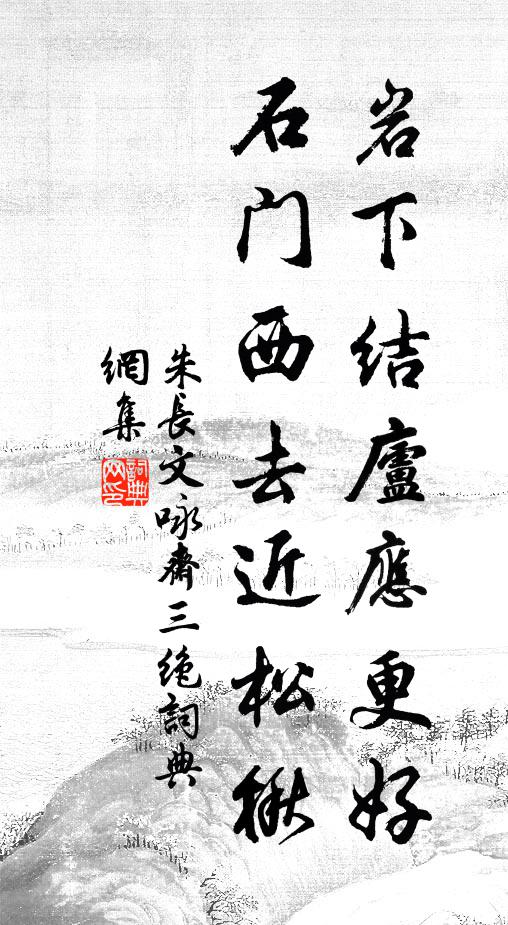 岩下结廬應更好
石门西去近松楸
朱長文咏齋三绝詞典
網集
詞典網印